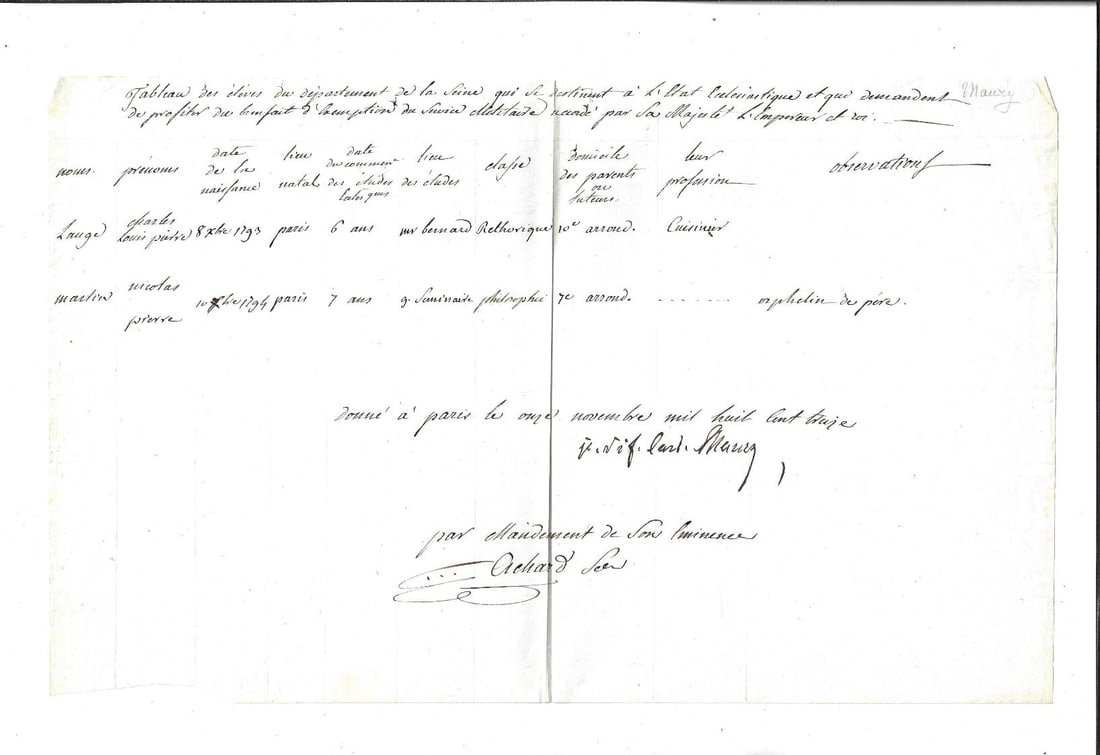 Tableau des élèves du département de la Seine qui se destinent à L'Etat Ecclésiastique et qui demandent
Maury
de profiter du bienfait d'Exemption du Service Militaire accordé par Sa Majesté L'Empereur et roi.
noms. prénoms date de la naissance lieu natal date du commenct des études lieu des études classe Domicile des parents ou tuteurs. leur profession observations
Lauge charles Louis pierre 8 xbre 1793 paris 6 ans mr bernard Rethorique 10e arrond. Cuisinier
martin nicolas pierre 10 xbre 1794 paris 7 ans g. Seminaire philosophie 7e arrond. ....... orphelin de père.
donné à paris le onze novembre mil huit Cent treize
j. Sif. Card. Maury
par Mandement de Son Eminence
Achard Sec